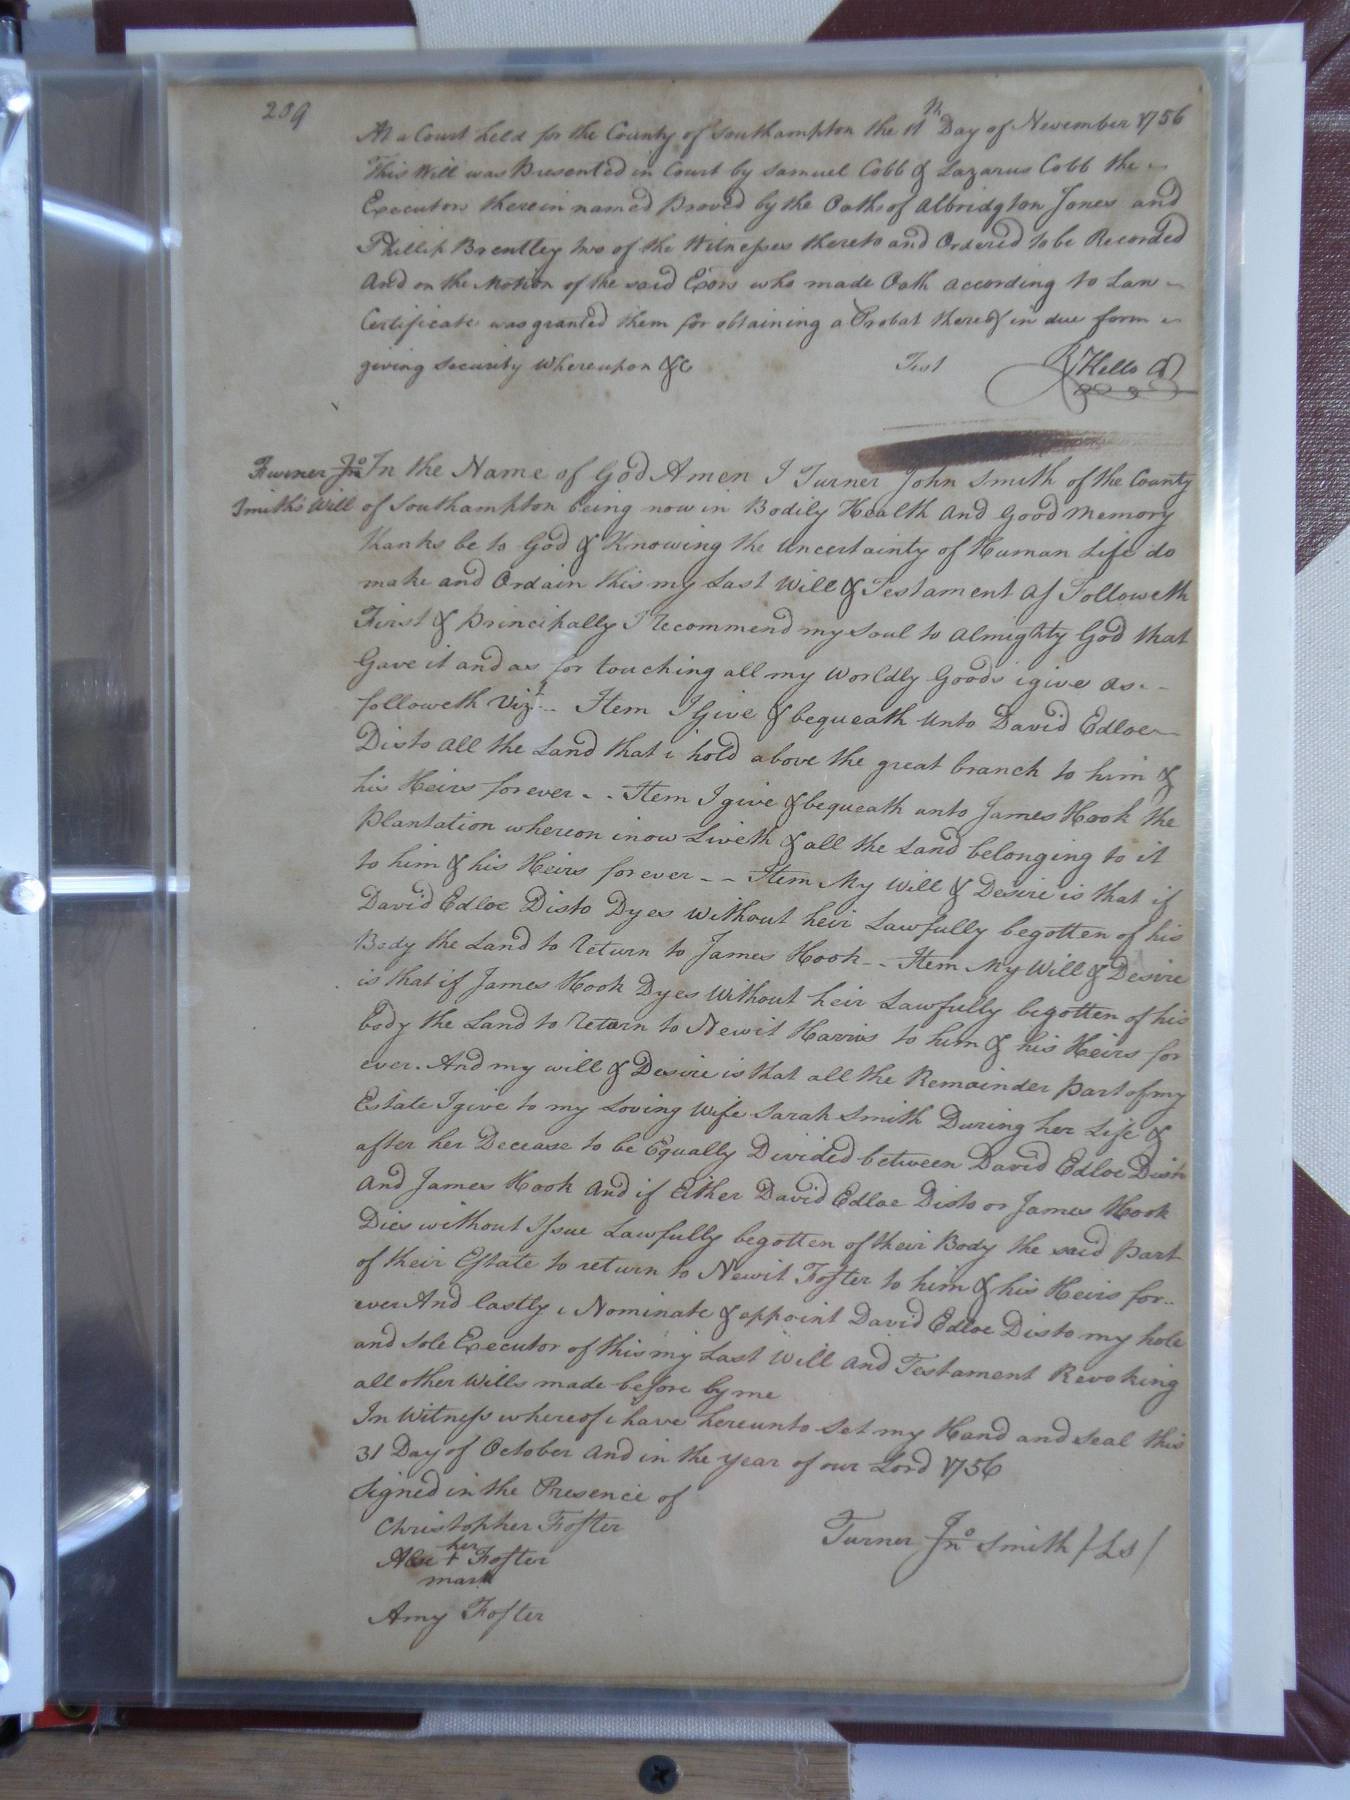 209
At a Court held for the County of Southampton the 11th Day of November 1756
This Will was Presented in Court by Samuel Cobb & Lazarus Cobb the
Executors therein named Proved by the Oaths of Albridgton Jones and
Phillip Brantley two of the Witnesses thereto and Ordered to be Recorded
And on the Motion of the said Exors who made Oath according to Law
Certificate was granted them for obtaining a Probat thereof in due form
giving Security Whereupon &c Test
Turner Jno In the Name of God Amen I Turner John Smith of the County
Smith's Will of Southampton being now in Bodily Health And Good Memory
thanks be to God & Knowing the Uncertainty of Human Life do
make and Ordain this my Last Will & Testament As Followeth
First & Principally I Recommend my Soul to Almighty God that
Gave it and as for touching all my Worldly Goods i give as
followeth Viz.t Item I Give & bequeath Unto David Edloe
Disto All the Land that i hold above the great branch to him &
his Heirs forever - - Item I give & bequeath unto James Hook the
Plantation whereon i now Liveth & all the Land belonging to it
to him & his Heirs forever - - Item My Will & Desire is that if
David Edloe Disto Dyes Without heir Lawfully begotten of his
Body the Land to Return to James Hook - - Item My Will & Desire
is that if James Hook Dyes Without heir Lawfully begotten of his
body the Land to Return to Newit Harris to him & his Heirs for
ever. And my will & Desire is that all the Remainder part of my
Estate I give to my Loving Wife Sarah Smith During her Life &
after her Decease to be Equally Divided between David Edloe Disto
And James Hook And if Either David Edloe Disto or James Hook
Dies without Issue Lawfully begotten of their Body the said part
of their Estate to return to Newit Foster to him & his Heirs for..
ever And lastly i Nominate & appoint David Edloe Disto my hole
and sole Executor of this my Last Will And Testament Revoking
all other Wills made before by me
In Witness whereof i have hereunto Set my Hand and Seal this
31 Day of October And in the year of our Lord 1756
Signed in the Presence of
Christopher Foster
Turner Jno Smith /LS/
her
+ Foster
mark
Amy Foster